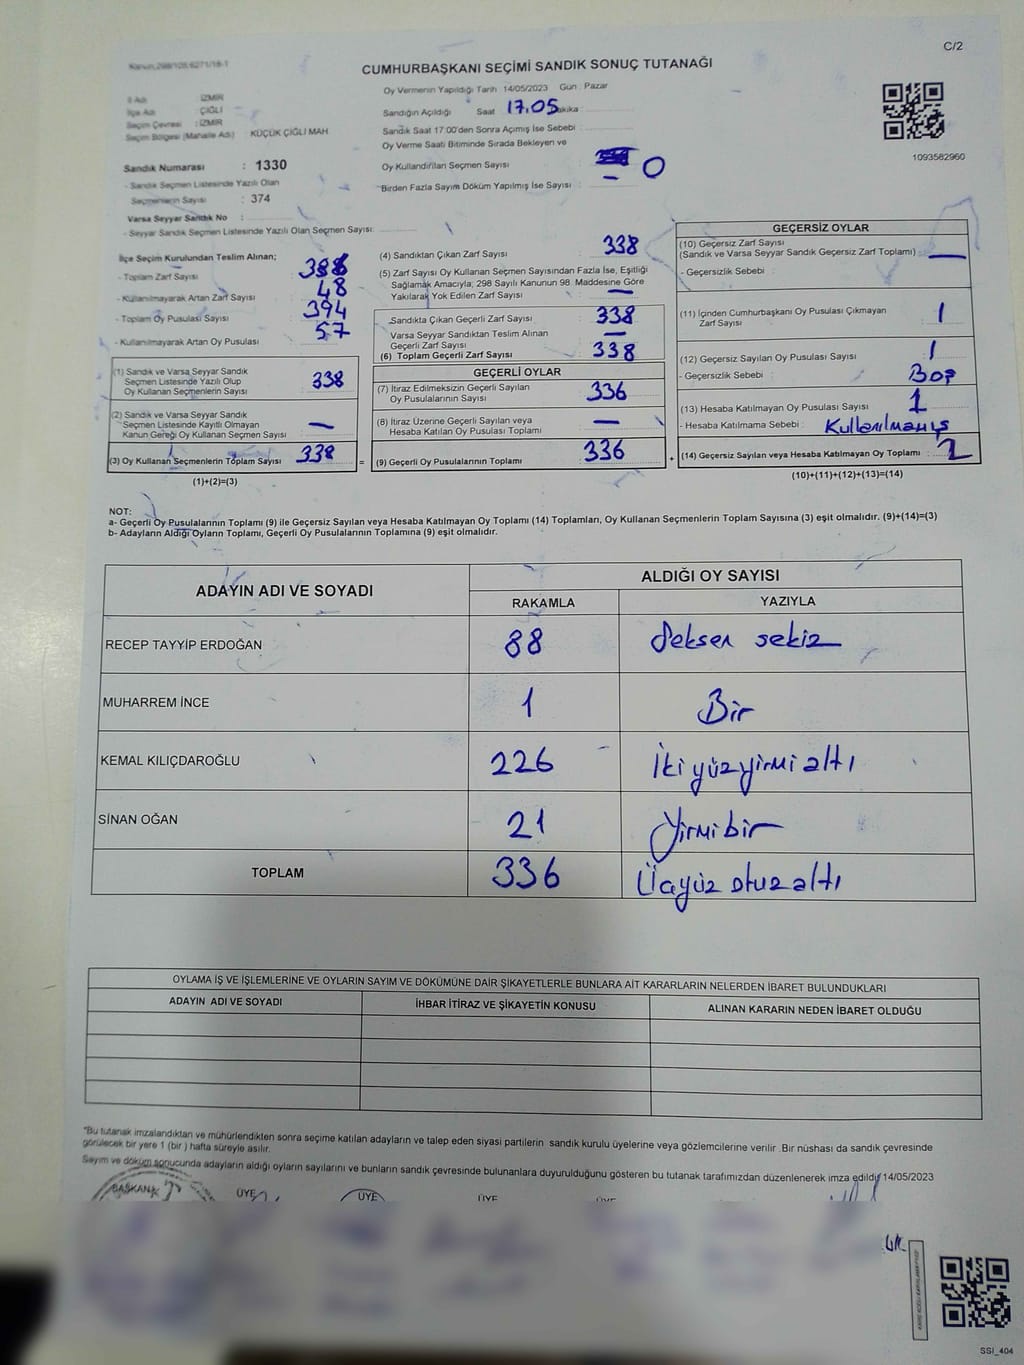 C/2
Kanun,298/105,6271/18-1
CUMHURBAŞKANI SEÇİMİ SANDIK SONUÇ TUTANAĞI
İl Adı : İZMİR
İlçe Adı : ÇİĞLİ
Seçim Çevresi : İZMİR
Seçim Bölgesi (Mahalle Adı) KÜÇÜK ÇİĞLİ MAH
Sandık Numarası : 1330
- Sandık Seçmen Listesinde Yazılı Olan
Seçmenlerin Sayısı : 374
Varsa Seyyar Sandık No :
- Seyyar Sandık Seçmen Listesinde Yazılı Olan Seçmen Sayısı:
Oy Vermenin Yapıldığı Tarih 14/05/2023 Gün : Pazar
Sandığın Açıldığı Saat 17.05 Dakika :
Sandık Saat 17:00'den Sonra Açmış İse Sebebi :
Oy Verme Saati Bitiminde Sırada Bekleyen ve
Oy Kullandırılan Seçmen Sayısı : 0
Birden Fazla Sayım Döküm Yapılmış İse Sayısı : —
1093582960
İlçe Seçim Kurulundan Teslim Alınan;
- Toplam Zarf Sayısı
- Kullanılmayarak Artan Zarf Sayısı : 48
- Toplam Oy Pusulası Sayısı : 394
- Kullanılmayarak Artan Oy Pusulası : 57
(1) Sandık ve Varsa Seyyar Sandık
Seçmen Listesinde Yazılı Olup
Oy Kullanan Seçmenlerin Sayısı : 338
(2) Sandık ve Varsa Seyyar Sandık
Seçmen Listesinde Kayıtlı Olmayan
Kanun Gereği Oy Kullanan Seçmen Sayısı : —
(3) Oy Kullanan Seçmenlerin Toplam Sayısı : 338
(1)+(2)=(3)
(4) Sandıktan Çıkan Zarf Sayısı : 338
(5) Zarf Sayısı Oy Kullanan Seçmen Sayısından Fazla İse, Eşitliği
Sağlamak Amacıyla; 298 Sayılı Kanunun 98. Maddesine Göre
Yakılarak Yok Edilen Zarf Sayısı : —
Sandıkta Çıkan Geçerli Zarf Sayısı : 338
Varsa Seyyar Sandıktan Teslim Alınan
Geçerli Zarf Sayısı : —
(6) Toplam Geçerli Zarf Sayısı : 338
GEÇERLİ OYLAR
(7) İtiraz Edilmeksizin Geçerli Sayılan
Oy Pusulalarının Sayısı : 336
(8) İtiraz Üzerine Geçerli Sayılan veya
Hesaba Katılan Oy Pusulası Toplamı : —
= (9) Geçerli Oy Pusulalarının Toplamı : 336
GEÇERSİZ OYLAR
(10) Geçersiz Zarf Sayısı
(Sandık ve Varsa Seyyar Sandık Geçersiz Zarf Toplamı) : —
- Geçersizlik Sebebi :
(11) İçinden Cumhurbaşkanı Oy Pusulası Çıkmayan
Zarf Sayısı : 1
(12) Geçersiz Sayılan Oy Pusulası Sayısı : 1
- Geçersizlik Sebebi : Boş
(13) Hesaba Katılmayan Oy Pusulası Sayısı : 1
- Hesaba Katılmama Sebebi : Kullanılmamış
+ (14) Geçersiz Sayılan veya Hesaba Katılmayan Oy Toplamı : 2
(10)+(11)+(12)+(13)=(14)
NOT:
a- Geçerli Oy Pusulalarının Toplamı (9) ile Geçersiz Sayılan veya Hesaba Katılmayan Oy Toplamı (14) Toplamları, Oy Kullanan Seçmenlerin Toplam Sayısına (3) eşit olmalıdır. (9)+(14)=(3)
b- Adayların Aldığı Oyların Toplamı, Geçerli Oy Pusulalarının Toplamına (9) eşit olmalıdır.
ADAYIN ADI VE SOYADI ALDIĞI OY SAYISI
RAKAMLA YAZIYLA
RECEP TAYYİP ERDOĞAN 88 Seksen sekiz
MUHARREM İNCE 1 Bir
KEMAL KILIÇDAROĞLU 226 İki yüz yirmi altı
SİNAN OĞAN 21 Yirmi bir
TOPLAM 336 Üçyüz otuz altı
OYLAMA İŞ VE İŞLEMLERİNE VE OYLARIN SAYIM VE DÖKÜMÜNE DAİR ŞİKAYETLERLE BUNLARA AİT KARARLARIN NELERDEN İBARET BULUNDUKLARI
ADAYIN ADI VE SOYADI İHBAR İTİRAZ VE ŞİKAYETİN KONUSU ALINAN KARARIN NEDEN İBARET OLDUĞU
*Bu tutanak imzalandıktan ve mühürlendikten sonra seçime katılan adayların ve talep eden siyasi partilerin sandık kurulu üyelerine veya gözlemcilerine verilir. Bir nüshası da sandık çevresinde
görülecek bir yere 1 (bir ) hafta süreyle asılır.
Sayım ve döküm sonucunda adayların aldığı oyların sayılarını ve bunların sandık çevresinde bulunanlara duyurulduğunu gösteren bu tutanak tarafımızdan düzenlenerek imza edildi. 14/05/2023
BAŞKAN ÜYE ÜYE ÜYE ÜYE
SSI_404